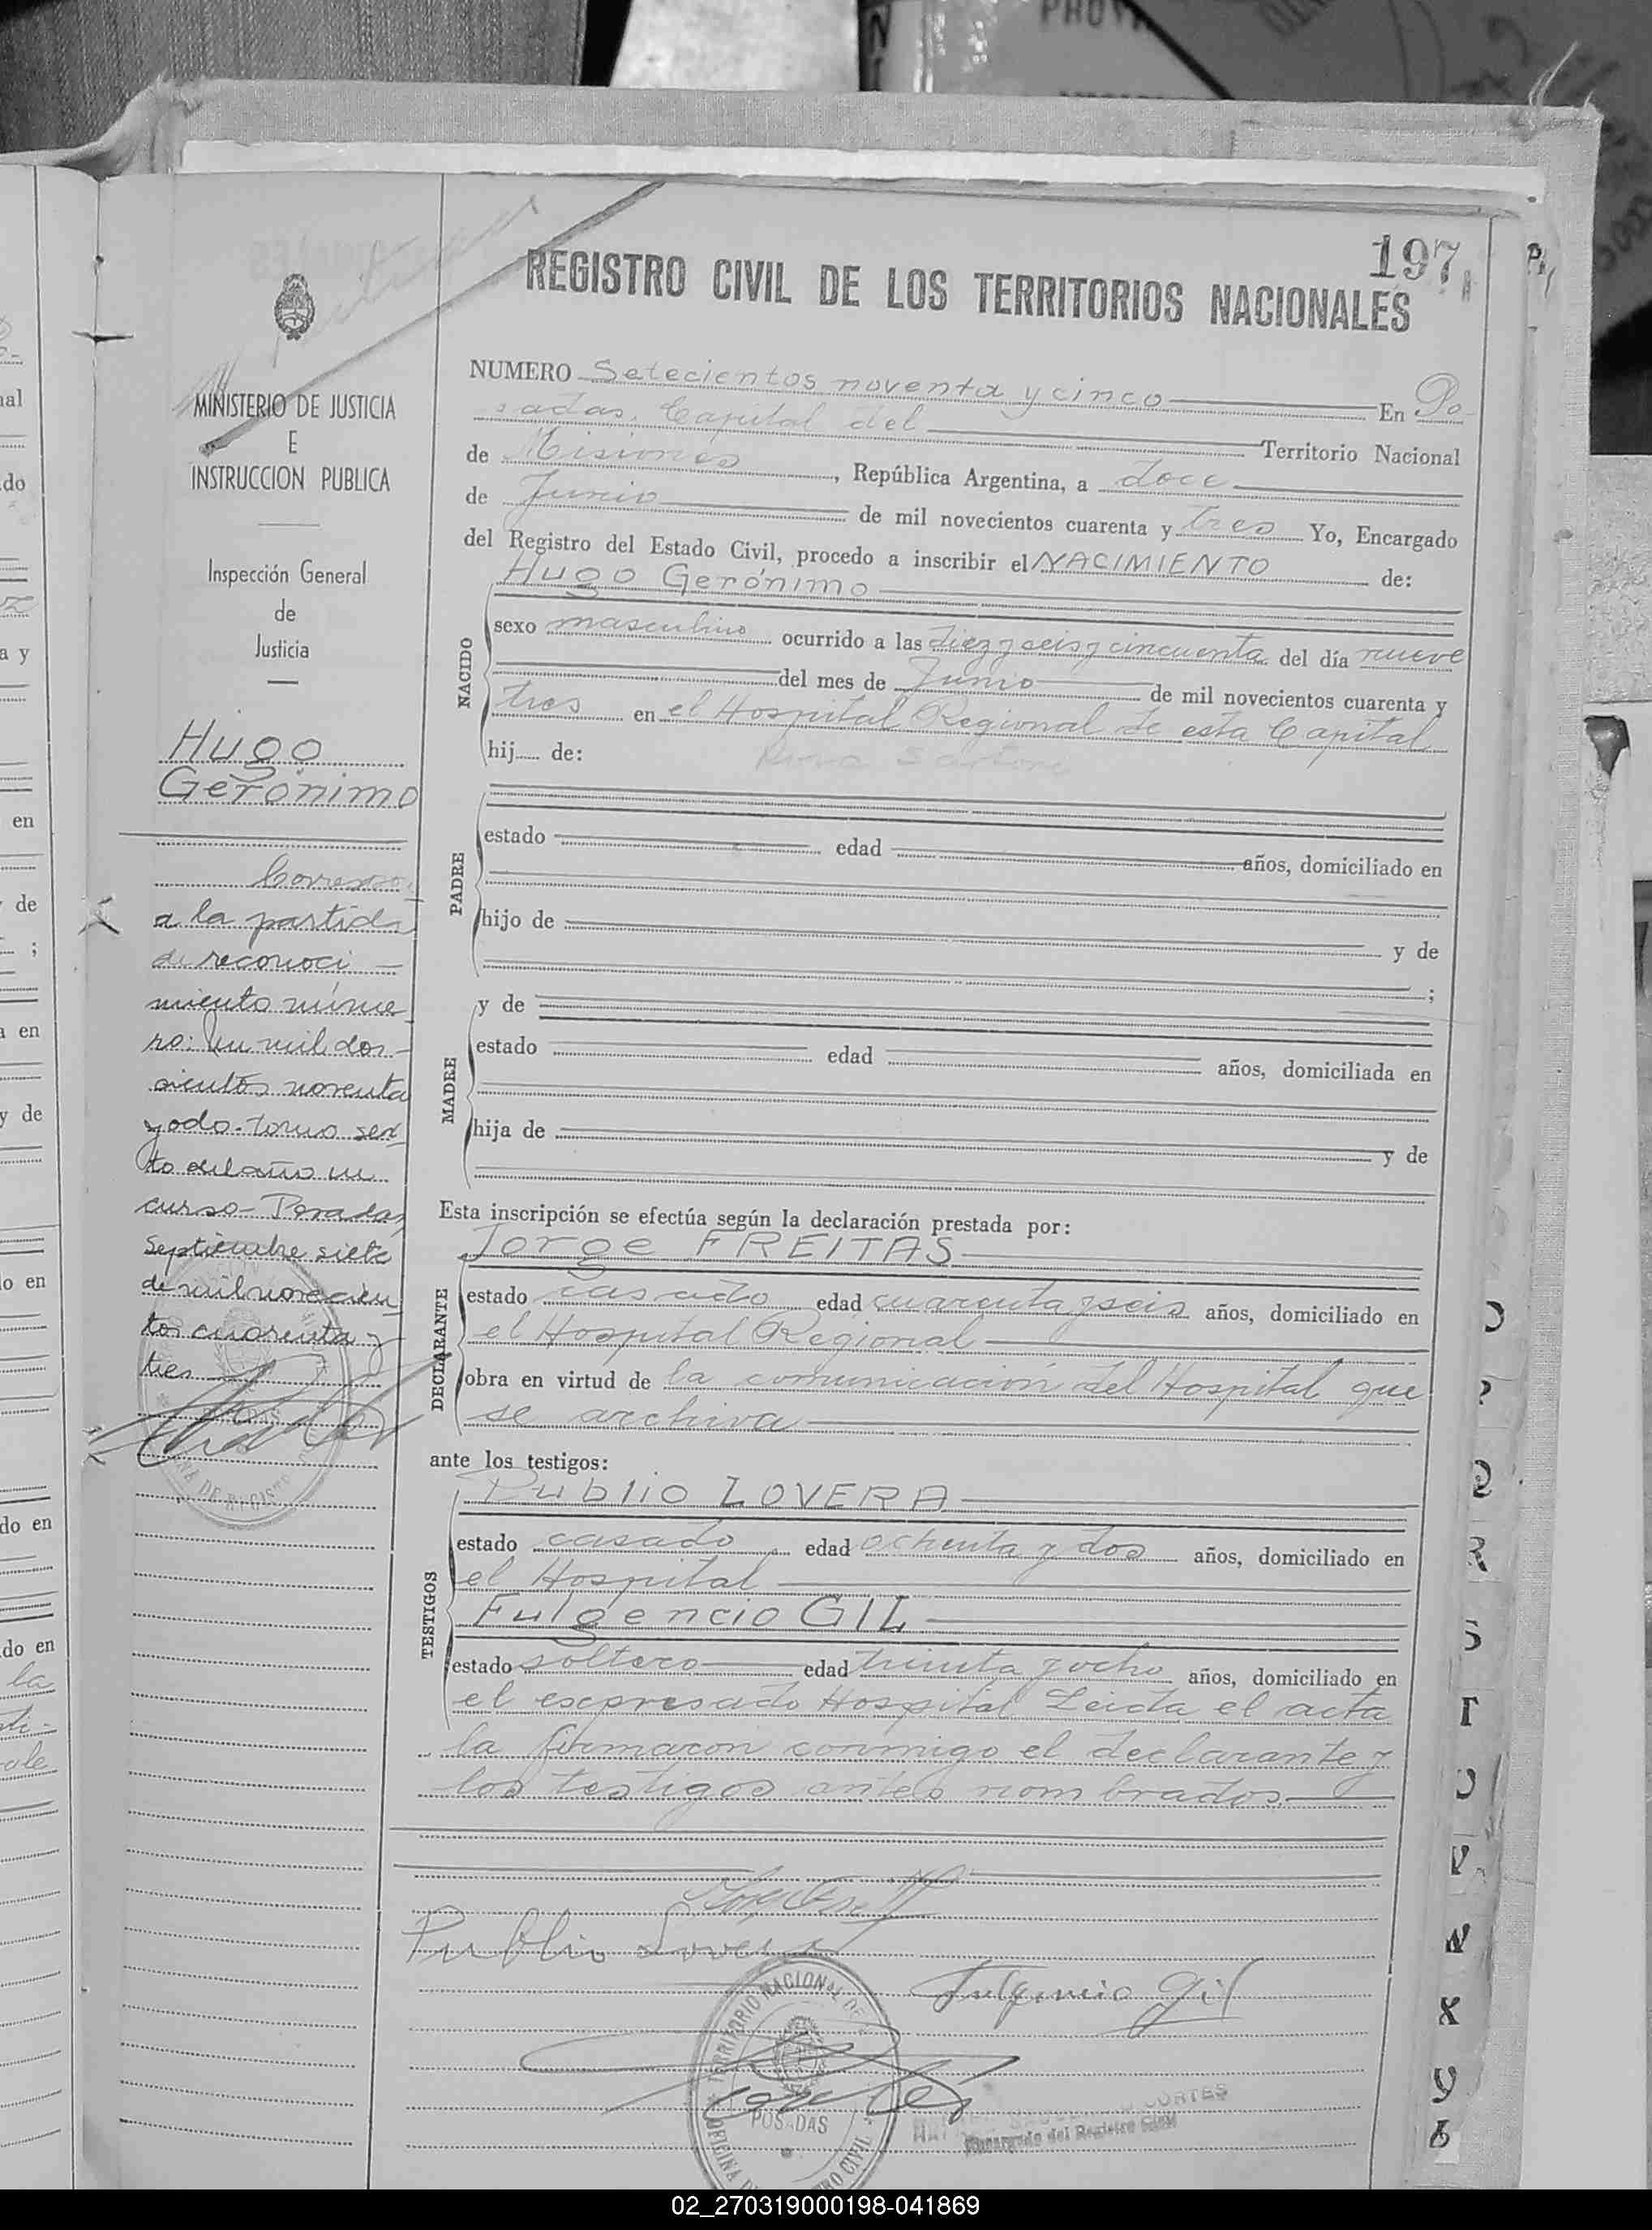 197
REGISTRO CIVIL DE LOS TERRITORIOS NACIONALES
MINISTERIO DE JUSTICIA
E
INSTRUCCION PUBLICA
Inspección General
de
Justicia
Hugo
Gerónimo
a la partida
de reconoci-
miento núme
ro: Un mil dos-
cientos noventa
y odo. tomo sex
to del año en
curso - Posadas,
Septiembre siete
de mil novecien
tos cuarenta y
tres
NUMERO Setecientos noventa y cinco En Po
sadas, Capital del Territorio Nacional
de Misiones, República Argentina, a doce
de Junio de mil novecientos cuarenta y tres Yo, Encargado
del Registro del Estado Civil, procedo a inscribir el NACIMIENTO de:
Hugo Gerónimo
NACIDO
sexo masculino ocurrido a las diez y seis y cincuenta del día nueve
del mes de Junio de mil novecientos cuarenta y
tres en el Hospital Regional de esta Capital
hij de:
PADRE
estado edad años, domiciliado en
hijo de y de
;
MADRE
y de
estado edad años, domiciliada en
hija de y de
Esta inscripción se efectúa según la declaración prestada por:
Jorge FREITAS
DECLARANTE
estado casado edad cuarenta y seis años, domiciliado en
el Hospital Regional
obra en virtud de la comunicación del Hospital que
se archiva
ante los testigos:
Publio LOVERA
TESTIGOS
estado casado edad ochenta y dos años, domiciliado en
el Hospital
Fulgencio GIL
estado soltero edad treinta y ocho años, domiciliado en
el expresado Hospital Leida el acta
la firmaron conmigo el declarante y
los testigos antes nombrados
Publio Lovera
Fulgencio Gil
TERRITORIO NACIONAL DE
POSADAS
CORTES
Encargado del Registro Civil
02_270319000198-041869